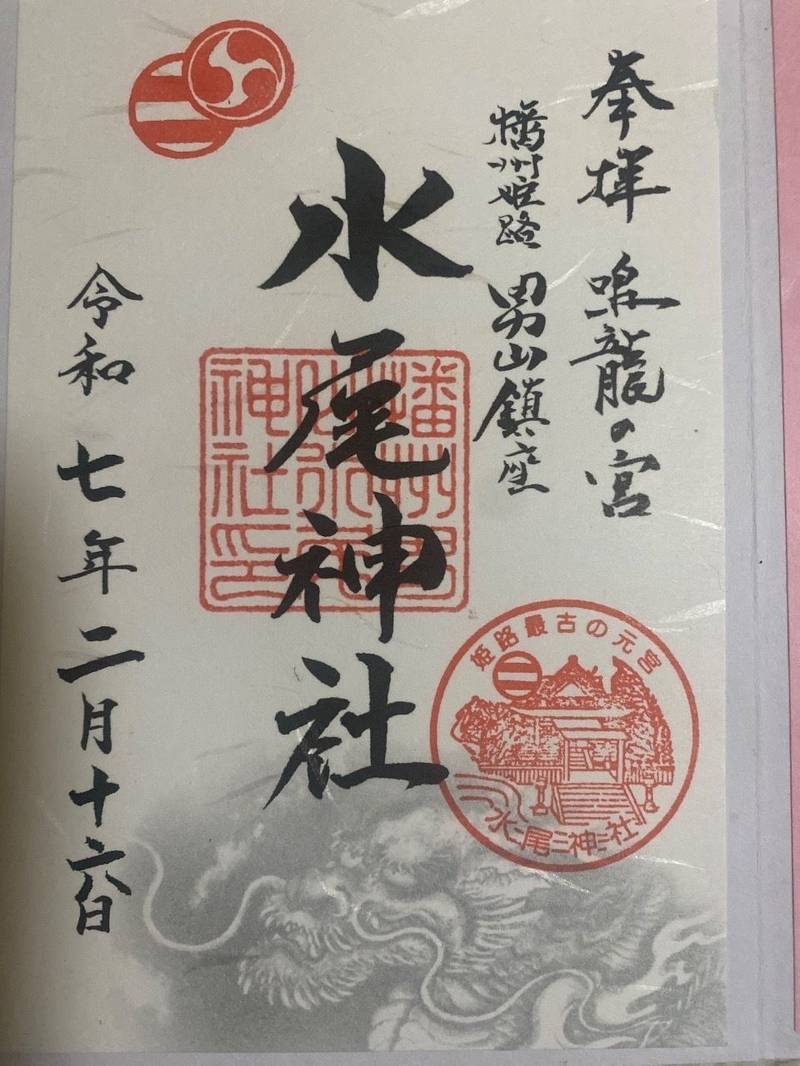 奉拝 鳴龍の宮
播州姫路 男山鎮座
水尾神社
令和 七年 二月十六日
神社印
姫路最古の元宮
水尾神社